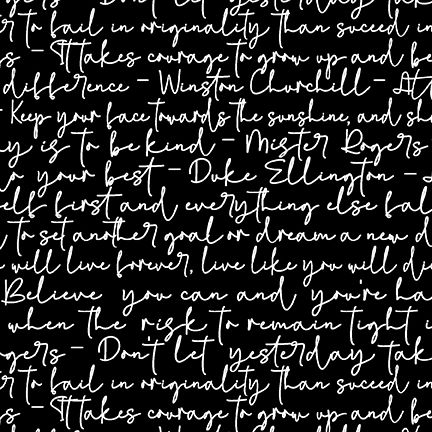 Don't let yesterday tak
r to fail in originality than suceed in
gs – It takes courage to grow up and be
difference – Winston Churchill – Att
Keep your face towards the sunshine, and sh
ay is to be kind – Mister Rogers
your best – Duke Ellington –
elf first and everything else fal
to set another goal or dream a new d
will live forever, live like you will di
Believe you can and you're ha
when the risk to remain tight i
ogers – Don't let yesterday tak
r to fail in originality than suceed in
gs – It takes courage to grow up and be